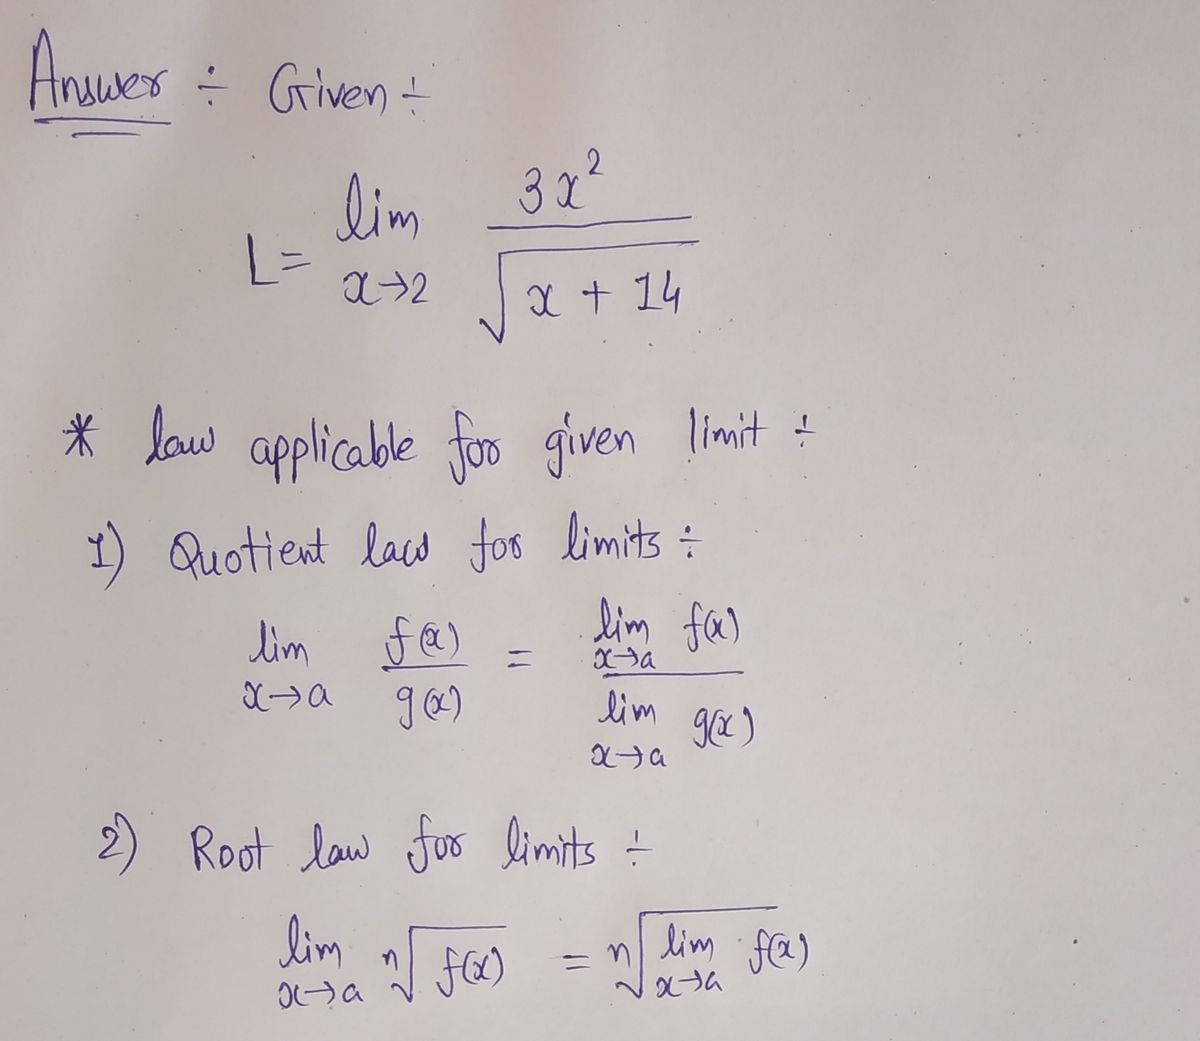 Answer ÷ Given ÷
L = lim x→2 3x² / √(x + 14)
* law applicable for given limit ÷
1) Quotient law for limits ÷
lim x→a f(x) / g(x) = lim x→a f(x) / lim x→a g(x)
2) Root law for limits ÷
lim x→a ⁿ√f(x) = ⁿ√lim x→a f(x)